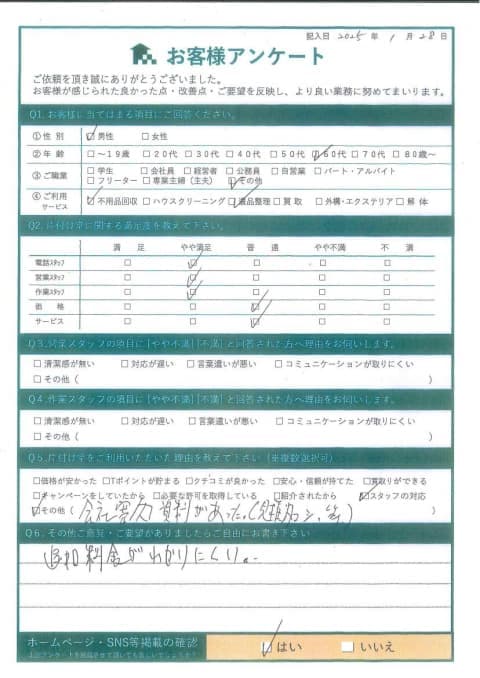 記入日 2025 年 1 月 28 日
お客様アンケート
ご依頼を頂き誠にありがとうございました。
お客様が感じられた良かった点・改善点・ご要望を反映し、より良い業務に努めてまいります。
Q1. お客様に当てはまる項目にご回答ください。
①性 別 ☑男性 □女性
②年 齢 □～19歳 □20代 □30代 □40代 □50代 ☑60代 □70代 □80歳～
③ご職業 □学生 □会社員 □経営者 □公務員 □自営業 □パート・アルバイト
□フリーター □専業主婦（主夫） ☑その他
④ご利用サービス ☑不用品回収 □ハウスクリーニング ☑遺品整理 □買取 □外構・エクステリア □解体
Q2. 片付け堂に関する満足度を教えて下さい。
満足 やや満足 普通 やや不満 不満
電話スタッフ □ ☑ □ □ □
営業スタッフ □ ☑ □ □ □
作業スタッフ □ ☑ □ □ □
価格 □ □ ☑ □ □
サービス □ □ ☑ □ □
Q3. 営業スタッフの項目に【やや不満】【不満】と回答された方へ理由をお伺いします。
□清潔感が無い □対応が遅い □言葉遣いが悪い □コミュニケーションが取りにくい
□その他（ ）
Q4. 作業スタッフの項目に【やや不満】【不満】と回答された方へ理由をお伺いします。
□清潔感が無い □対応が遅い □言葉遣いが悪い □コミュニケーションが取りにくい
□その他（ ）
Q5. 片付け堂をご利用いただいた理由を教えて下さい（※複数選択可）
□価格が安かった □Tポイントが貯まる □クチコミが良かった □安心・信頼が持てた □買取りができる
□キャンペーンをしていたから □必要な許可を取得している □紹介されたから ☑スタッフの対応
☑その他（ 会社案内 資料があった。
Q6. その他ご意見・ご要望がありましたらご自由にお書き下さい
追加料金がわかりにくい。
ホームページ・SNS等掲載の確認 ☑はい □いいえ